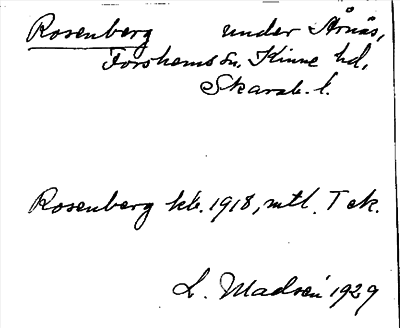 Rosenberg under Årnäs,
Forshems sn, Kinne hd,
Skarab. l.
Rosenberg kk. 1918, mtl. T ek.
L. Madsén 1929